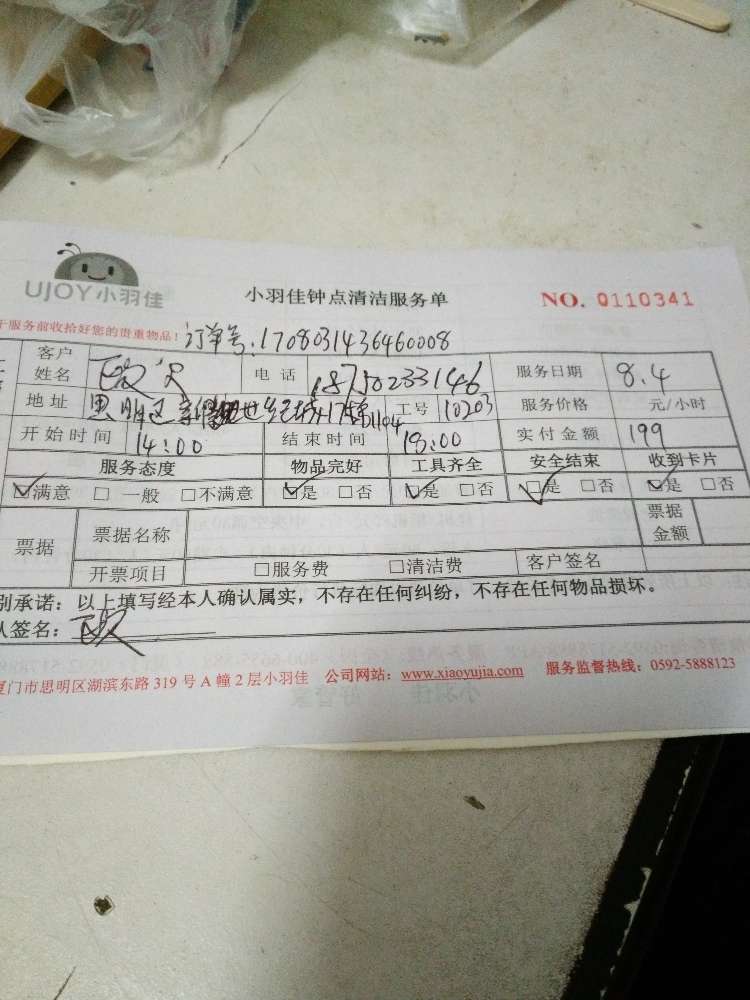 UJOY小羽佳
小羽佳钟点清洁服务单
NO. 0110341
服务前收拾好您的贵重物品！订单号:1708031436460008
客户姓名 欧 电话 18750233146 服务日期 8.4
地址 思明区 世纪城17栋1104 工号 10203 服务价格 元/小时
开始时间 14:00 结束时间 18:00 实付金额 199
服务态度 物品完好 工具齐全 安全结束 收到卡片
☑满意 □一般 □不满意 ☑是 □否 ☑是 □否 ☑是 □否 ☑是 □否
票据 票据名称 票据金额
开票项目 □服务费 □清洁费 客户签名
别承诺：以上填写经本人确认属实，不存在任何纠纷，不存在任何物品损坏。
人签名：欧
厦门市思明区湖滨东路319号A幢2层小羽佳 公司网站：www.xiaoyujia.com 服务监督热线：0592-5888123